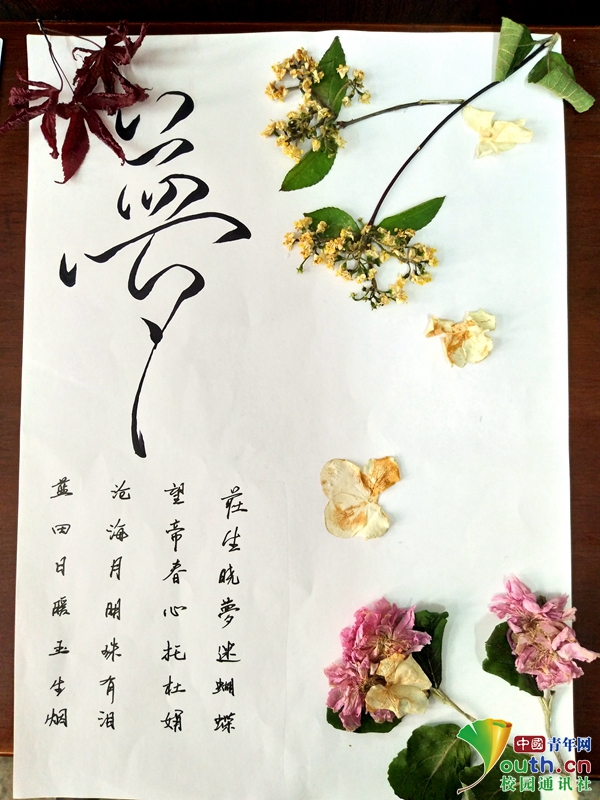 夢
莊生晓夢迷蝴蝶
望帝春心托杜娟
沧海月明珠有泪
蓝田日暖玉生烟
中國青年网
youth.cn
校园通讯社